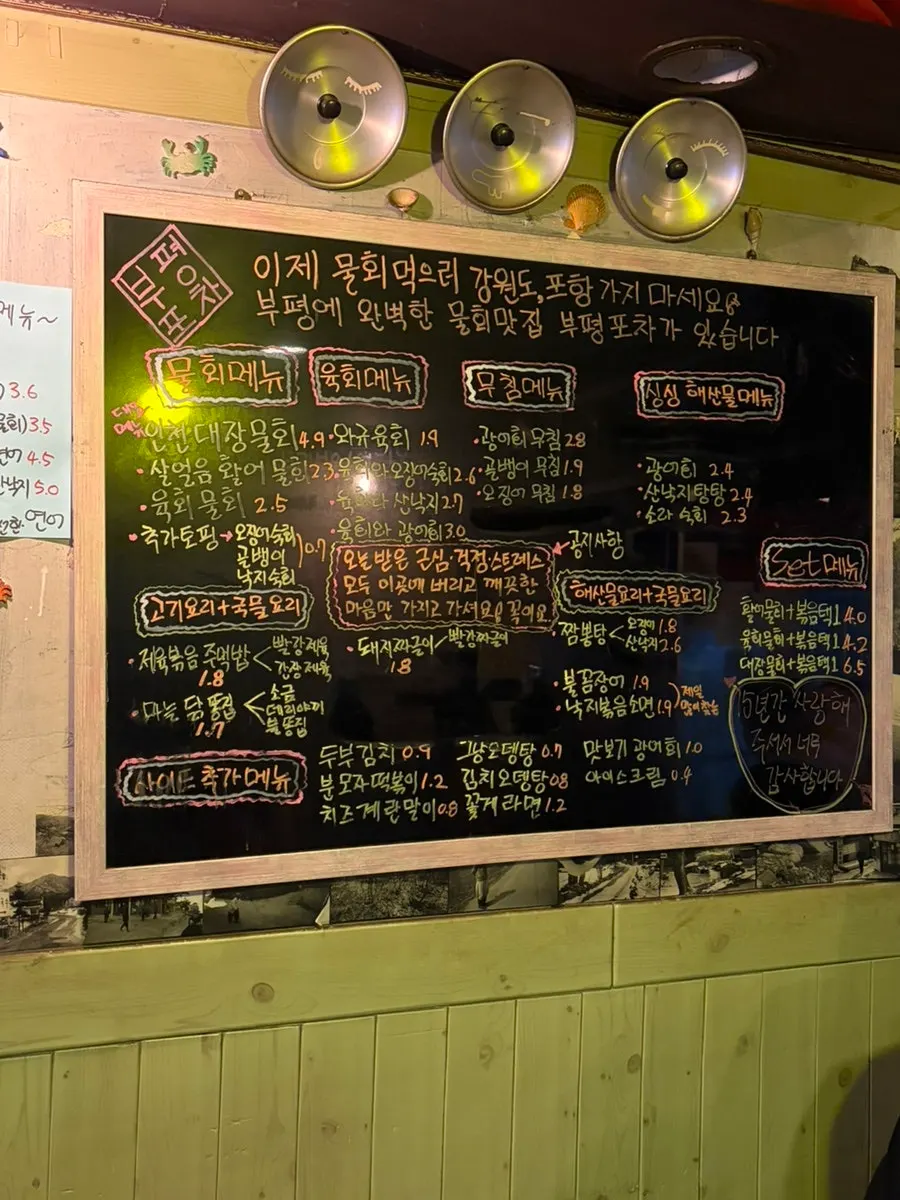 부평포차
이제 물회먹으러 강원도, 포항 가지 마세요
부평에 완벽한 물회맛집 부평포차가 있습니다
물회메뉴
대장물회 4.9
· 살얼음 활어 물회 2.3
· 육회물회 2.5
· 추가토핑 → 오징어숙회
골뱅이
낙지숙회
0.7
육회메뉴
· 와규육회 1.9
· 육회와 오징어숙회 2.6
육회와 산낙지 2.7
육회와 광어회 3.0
무침메뉴
· 광어회 무침 2.8
· 골뱅이 무침 1.9
· 오징어 무침 1.8
싱싱 해산물메뉴
· 광어회 2.4
· 산낙지탕탕 2.4
· 소라 숙회 2.3
공지사항
오늘 받은 근심·걱정·스트레스
모두 이곳에 버리고 깨끗한
마음만 가지고 가서요! 꽃이요
고기요리+국물요리
· 제육볶음 주먹밥
빨강제육
간장제육
1.8
· 마늘 닭똥집
소금
데리야끼
불똥집
1.7
· 돼지짜글이
빨강짜글이
1.8
해산물요리+국물요리
· 짬뽕탕
오징어 1.8
산낙지 2.6
· 불꼼장어 1.9
· 낙지볶음소면 1.9
제일
많이찾는
Set메뉴
활어물회+볶음택1 4.0
육회물회+볶음택1 4.2
대장물회+볶음택1 6.5
사이드 추가메뉴
두부김치 0.9
분모자떡볶이 1.2
치즈계란말이 0.8
그냥오뎅탕 0.7
김치오뎅탕 0.8
꽃게라면 1.2
맛보기 광어회 1.0
아이스크림 0.4
5년간 사랑해
주셔서 너무
감사합니다
메뉴~
3.6
물회) 3.5
연어 4.5
산낙지 5.0
연어